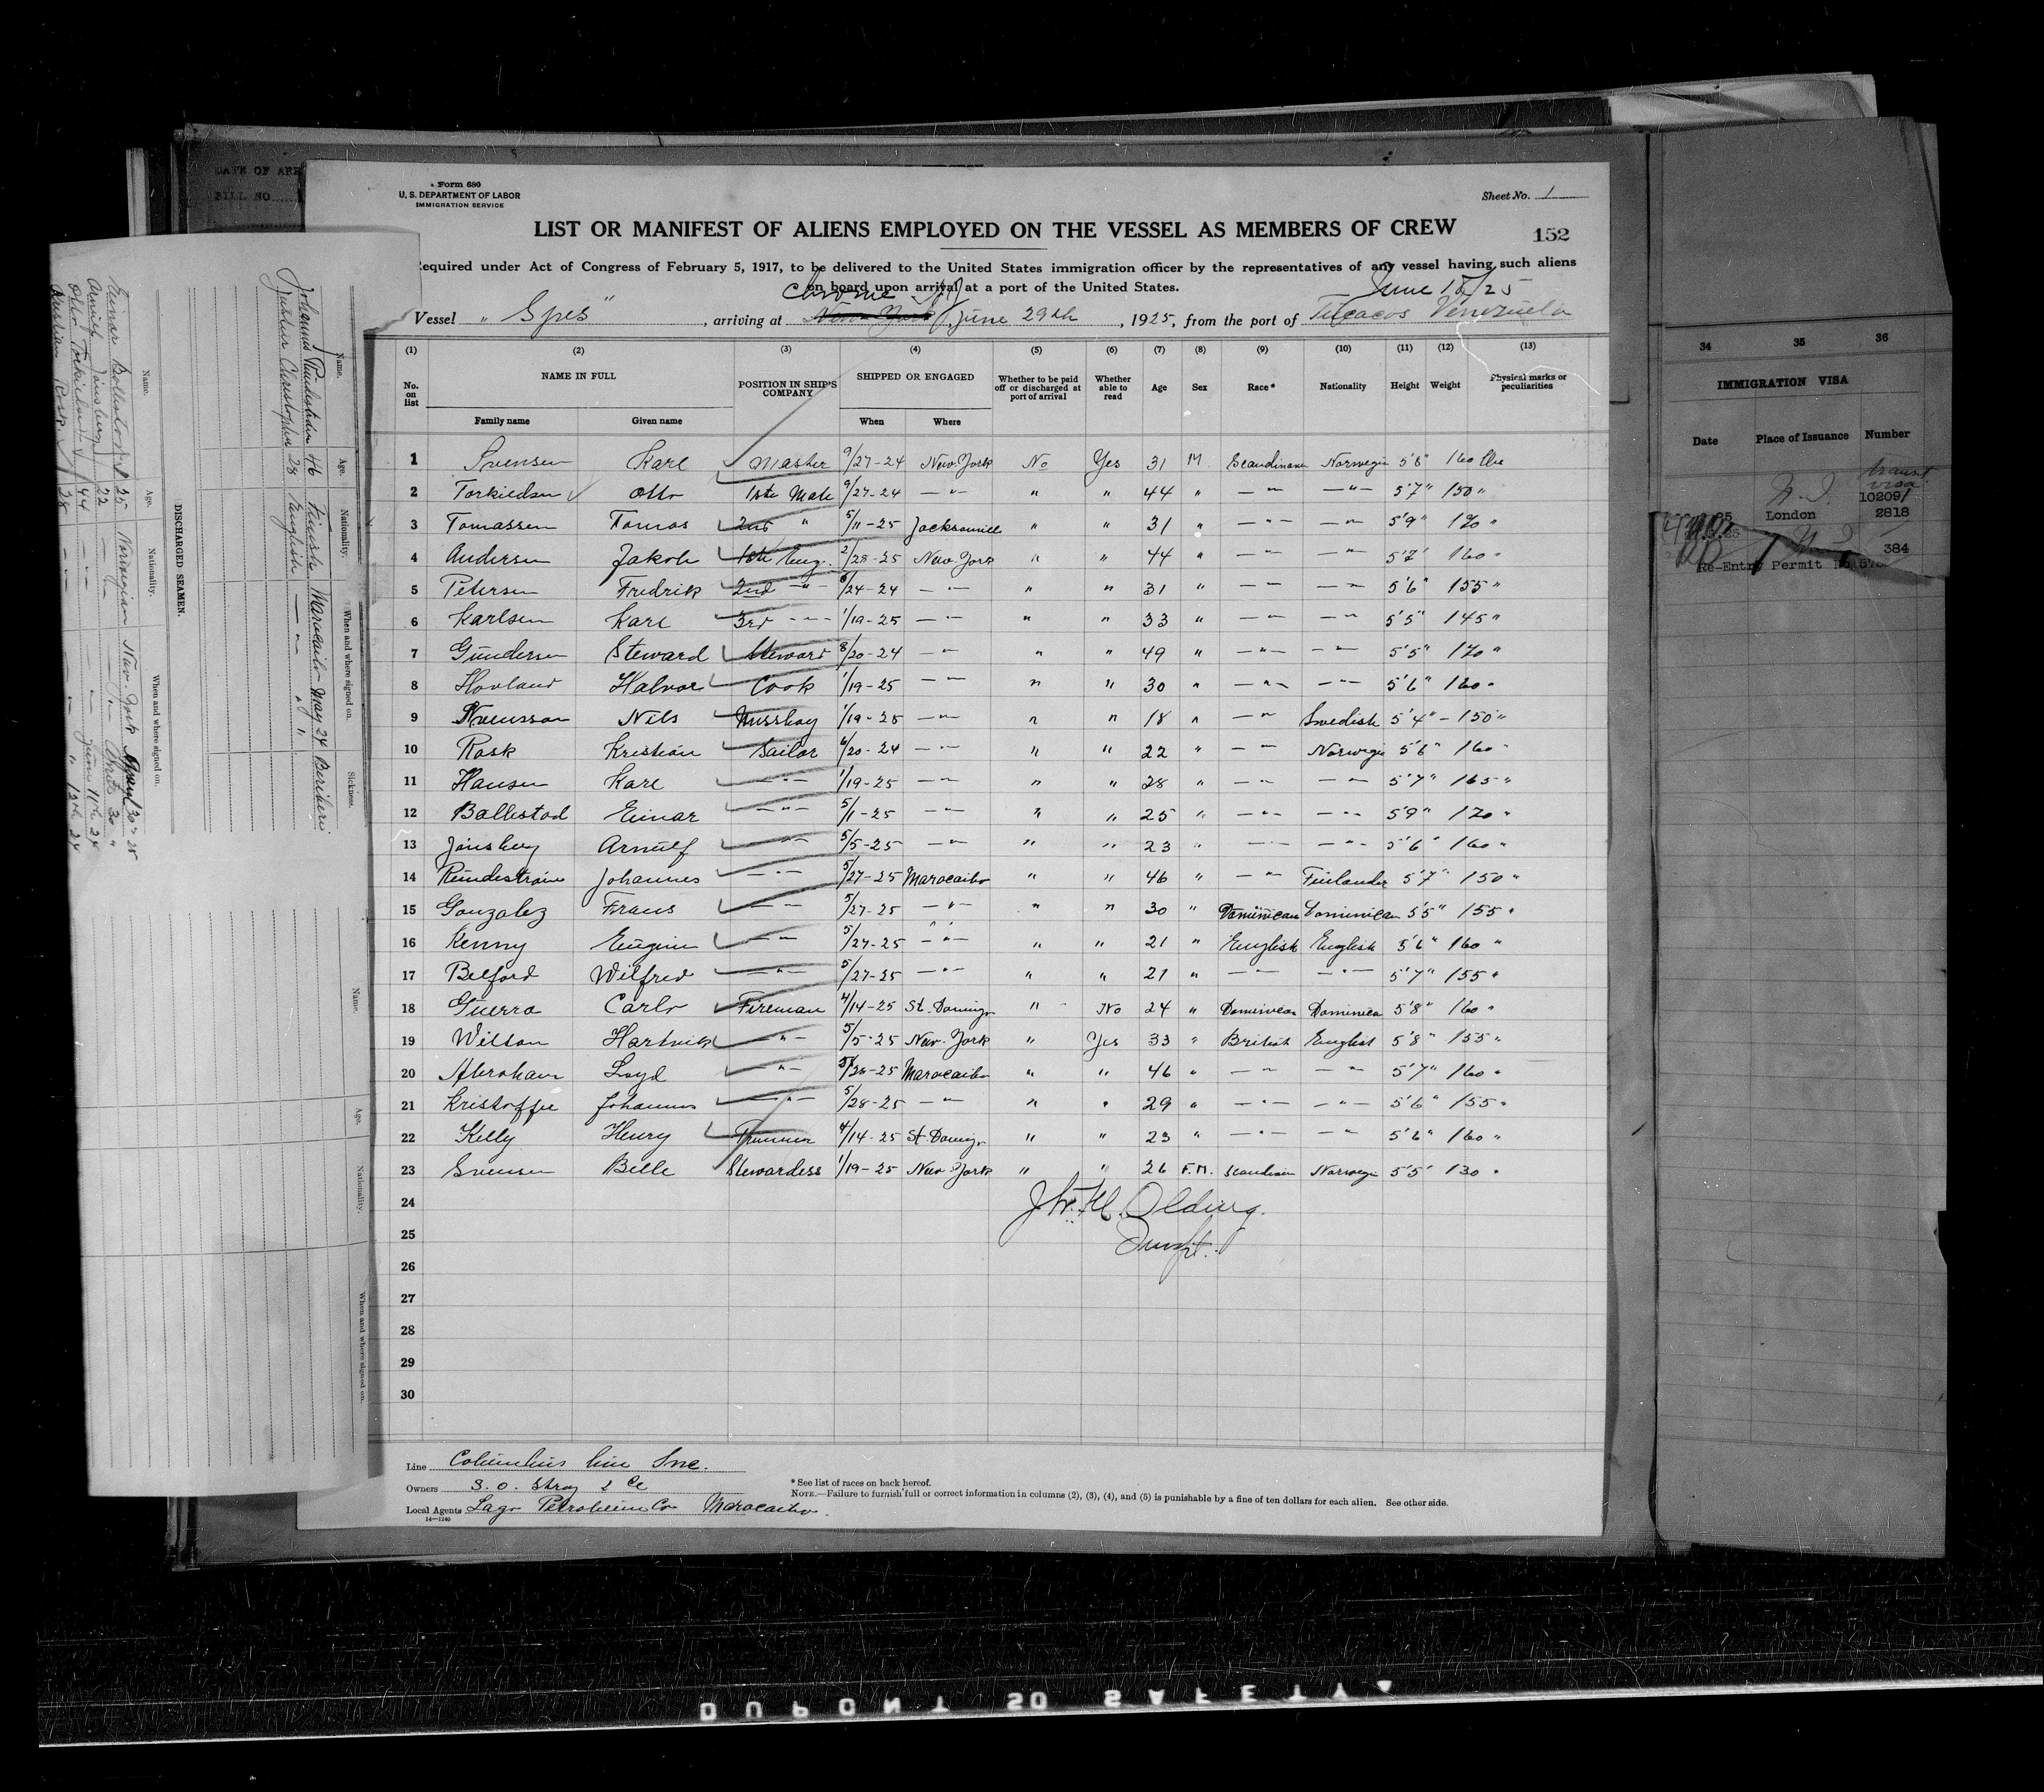 DATE OF ARR
BILL NO.
Form 680
U. S. DEPARTMENT OF LABOR
IMMIGRATION SERVICE
Sheet No. 1
LIST OR MANIFEST OF ALIENS EMPLOYED ON THE VESSEL AS MEMBERS OF CREW
152
equired under Act of Congress of February 5, 1917, to be delivered to the United States immigration officer by the representatives of any vessel having such aliens
on board upon arrival at a port of the United States.
Chrome N.J. June 18/25
Vessel "Spes", arriving at New York, June 29th, 1925, from the port of Venezuela
(1) (2) (3) (4) (5) (6) (7) (8) (9) (10) (11) (12) (13)
No. on list NAME IN FULL POSITION IN SHIP'S COMPANY SHIPPED OR ENGAGED Whether to be paid off or discharged at port of arrival Whether able to read Age Sex Race* Nationality Height Weight Physical marks or peculiarities
Family name Given name When Where
1 Svensen Karl Master 9/27-24 New York No Yes 31 M Scandinavn Norwegin 5'8" 160 lbs
2 Torkildsen Otto 1ste Mate 9/27-24 — " — " " 44 " — " — — " — 5'7" 150 "
3 Tomassen Tomas 2nd " 5/11-25 Jacksonville " " 31 " — " — — " — 5'9" 170 "
4 Andersen Jakob 1ste Eng. 2/28-25 New York " " 44 " — " — — " — 5'7" 160 "
5 Petersen Fredrik 2nd — " — /24-24 — " — " " 31 " — " — — " — 5'6" 155 "
6 Karlsen Karl 3rd — " — 1/19-25 — " — " " 33 " — " — — " — 5'5" 145 "
7 Gundersen Steward Steward 8/20-24 — " — " " 49 " — " — — " — 5'5" 170 "
8 Hovland Halvor Cook 1/19-25 — " — " " 30 " — " — — " — 5'6" 160 "
9 Nils Messboy 1/19-25 — " — " " 18 " — " — Swedish 5'4" — 150 "
10 Rosk Kristian Sailor 6/20-24 — " — " " 22 " — " — Norwegin 5'6" 160 "
11 Hansen Karl — " — 1/19-25 — " — " " 28 " — " — — " — 5'7" 165 "
12 Ballestad Einar — " — 5/1-25 — " — " " 25 " — " — — " — 5'9" 170 "
13 Jonsberg Arnulf — " — 5/5-25 — " — " " 23 " — " — — " — 5'6" 160 "
14 Johannes — " — 5/27-25 Maracaibo " " 46 " — " — Finlander 5'7" 150 "
15 Gonzalez Frans — " — 5/27-25 — " — " " 30 " Dominican Dominican 5'5" 155 "
16 Kenny Eugin — " — 5/27-25 — " — " " 21 " English English 5'6" 160 "
17 Belford Wilfred — " — 5/27-25 — " — " " 21 " — " — — " — 5'7" 155 "
18 Guerra Carlo Fireman 4/14-25 St. Domingo " No 24 " Dominican Dominica 5'8" 160 "
19 Wilson — " — 5/5-25 New York " Yes 33 " British English 5'8" 155 "
20 Abraham Loyd — " — 5/26-25 Maracaibo " " 46 " — " — — " — 5'7" 160 "
21 Kristoffer Johannes — " — 5/28-25 — " — " " 29 " — " — — " — 5'6" 155 "
22 Kelly Henry Trimmer 4/14-25 St. Domingo " " 23 " — " — — " — 5'6" 160 "
23 Svensen Belle Stewardess 1/19-25 New York " " 26 F.M. Scandinn Norwegin 5'5" 130 "
24
25
26
27
28
29
30
Olding
Line Columbus Line Inc.
Owners S. O. Stray & Co
Local Agents Lago Petroleum Co Maracaibo
14—1240
* See list of races on back hereof.
NOTE.—Failure to furnish full or correct information in columns (2), (3), (4), and (5) is punishable by a fine of ten dollars for each alien. See other side.
DISCHARGED SEAMEN.
Name. Age. Nationality. When and where signed on. Sickness.
Johannes 46 Finish Maracaibo May 24 Beriberi
28 English — " — "
Name. Age. Nationality. When and where signed on.
Einar Bollestad 25 Norwegian New York 30 25
Arnulf Jonsberg 22 — " — — " — 30 "
Otto Torkildsen 44 — " — — " — June 11th 24
Kristian Rosk 28 — " — — " — " 12th 24
Name. Age. Nationality. When and where signed on.
34 35 36
IMMIGRATION VISA
Date Place of Issuance Number
transit visa
10209/
London 2818
384
Re-Entry Permit No
DUPONT SO SAFETY